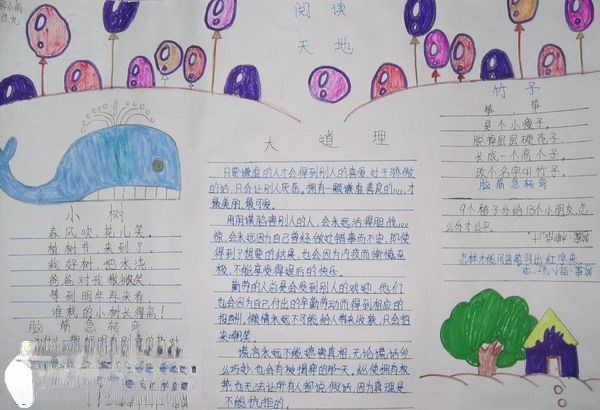 阅读
天地
小树
春风吹,花儿笑。
植树节,来到了。
栽好树,把水浇
爸爸对我微微笑。
等到明年再来看
谁栽的小树长得高!
脑筋急转弯
大道理
只要谦虚的人才会得到别人的喜爱,对于骄傲
的话,只会让别人厌恶。拥有一颗谦虚善良的心,才
最美丽,最可爱。
用阴谋陷害别人的人,会永远活得胆战心
惊,会永远因为自己曾经做过错事而不安,即使
得到了想要的结果,也会因为内疚而惭愧至
极,不能享受得逞后的快乐。
勤劳的人总是会受到别人的欢迎,他们
也会因为自己付出的辛勤劳动而得到相应的
报酬,懒惰永远不可能给人带来收获,只会招
来嘲笑。
谎言永远不能遮害真相,无论谎话
也会有被揭穿的那一天,纵使拥有权
势也无法让所有人都说假话,因为真理是
不能抗拒的。
竹子
笋笋
是个小瘦子。
脱掉层层硬花子。
长成一个高个子。
改个名字叫竹子。
脑筋急转弯
9个橙子分给13个小朋友,怎
么分才公平。
怎样才能用蓝笔写出红字来。